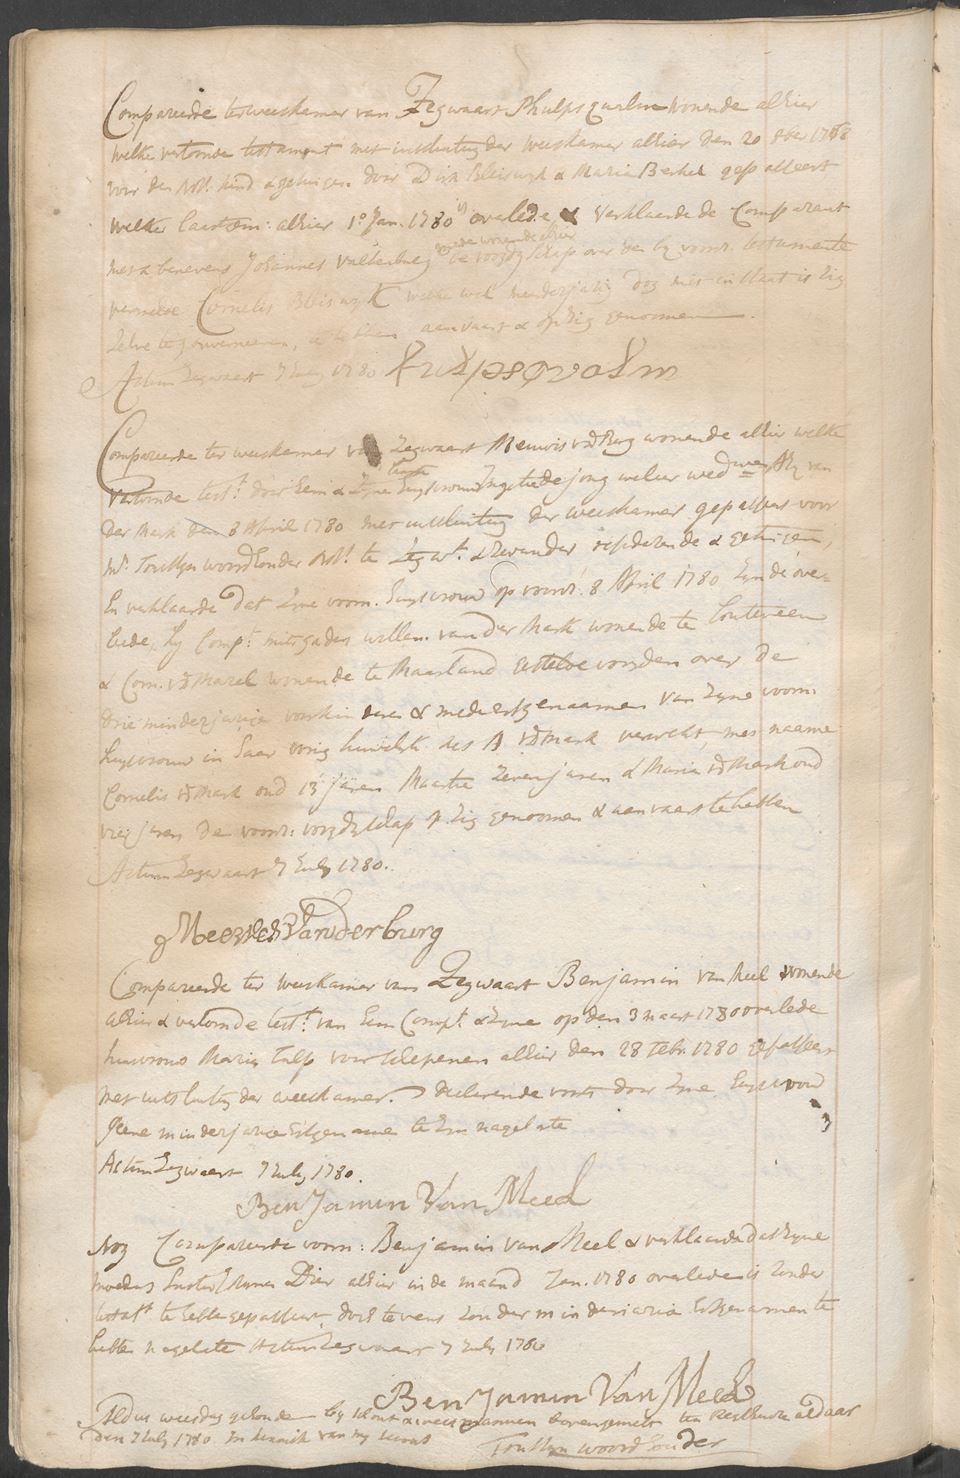 Compareerde ter weeskamer van Zegwaart Phulps qualm wonende alhier
welke vertoonde testament met uitsluiting der weeskamer alhier den 20 8ber
voor den Nots. & getuigen. door Dirk Bleiswyk & Maria Berkel gepasseert
welke laatste: alhier 1o. Jan. 1780 overlede & verklaarde de Comparant
met & benevens Johannes Valkenburg mede wonende alhier de voogdyschap over den by voorn. testamente
vermelde Cornelis Bleiswyk welke wel minderjarig dog niet in staat is zig
zelve te gouverneeren, te hebben aanvaart & op zig genoomen.
Actum Zegwaart 7 July 1780
Compareerde ter weeskamer van Zegwaart Meuwis vd Burg wonende alhier welke
vertoonde testt. door Hem & Zyne Huysvrouw Ingetje de jong weleer wedwe van Ary van
der Mark den 8 April 1780 met uitsluiting der weeskamer gepasseert voor
Mr. woordhonder Nots. te Zegwt. & getuigen,
En verklaarde dat Zyne voorn. Huysvrouw op voorn. 8 April 1780 Zynde over-
leede, hy Compt. mitsgaders willem van der Mark wonende te
& Corn. vd Marel wonende te Maasland gestelde voogden over de
drie minderjarige voorkinderen & mede erfgenaamen van Zyne voorn.
huysvrouw in haar vorig huwelyk met A vd Mark verwekt, met naame
Cornelis vd Mark oud 13 jaren Maartje Zeven jaren & Maria vd Mark oud
vier jaren de voorn: voogdyschap op zig genoomen & aanvaart te hebben
Actum Zegwaart 7 July 1780.
Meewes van der burg
Compareerde ter weeskamer van Zegwaart Benjamin van Meel wonende
alhier & vertoonde testt. van Hem Compt. & Zyne op den 3 maart 1780 overlede
huisvrouw Maria Tulp voor schepenen alhier den 28 Febr. 1780 gepasseert
met uitsluiting der weeskamer. declareerende voorts door Zyne huysvrouw
geene minderjarige Erfgename te Zyn nagelate
Actum Zegwaart 7 July 1780.
Benjamin Van Meel
Nog Compareerde voorn: Benjamin van Meel & verklaarde dat Zyne
moeders suster Dier alhier in de maand Jan. 1780 overleden is zonder
testat. te hebbe gepasseert, doch tevens zonder minderjarige Erfgenamen te
hebben nagelate Actum Zegwaart 7 July 1780
Benjamin Van Meel
Aldus weesdag gehouden by schout & weesmannen bovengemelt ten Regthuize aldaar
den 7 July 1780 In kennis van my secrets
woordhonder